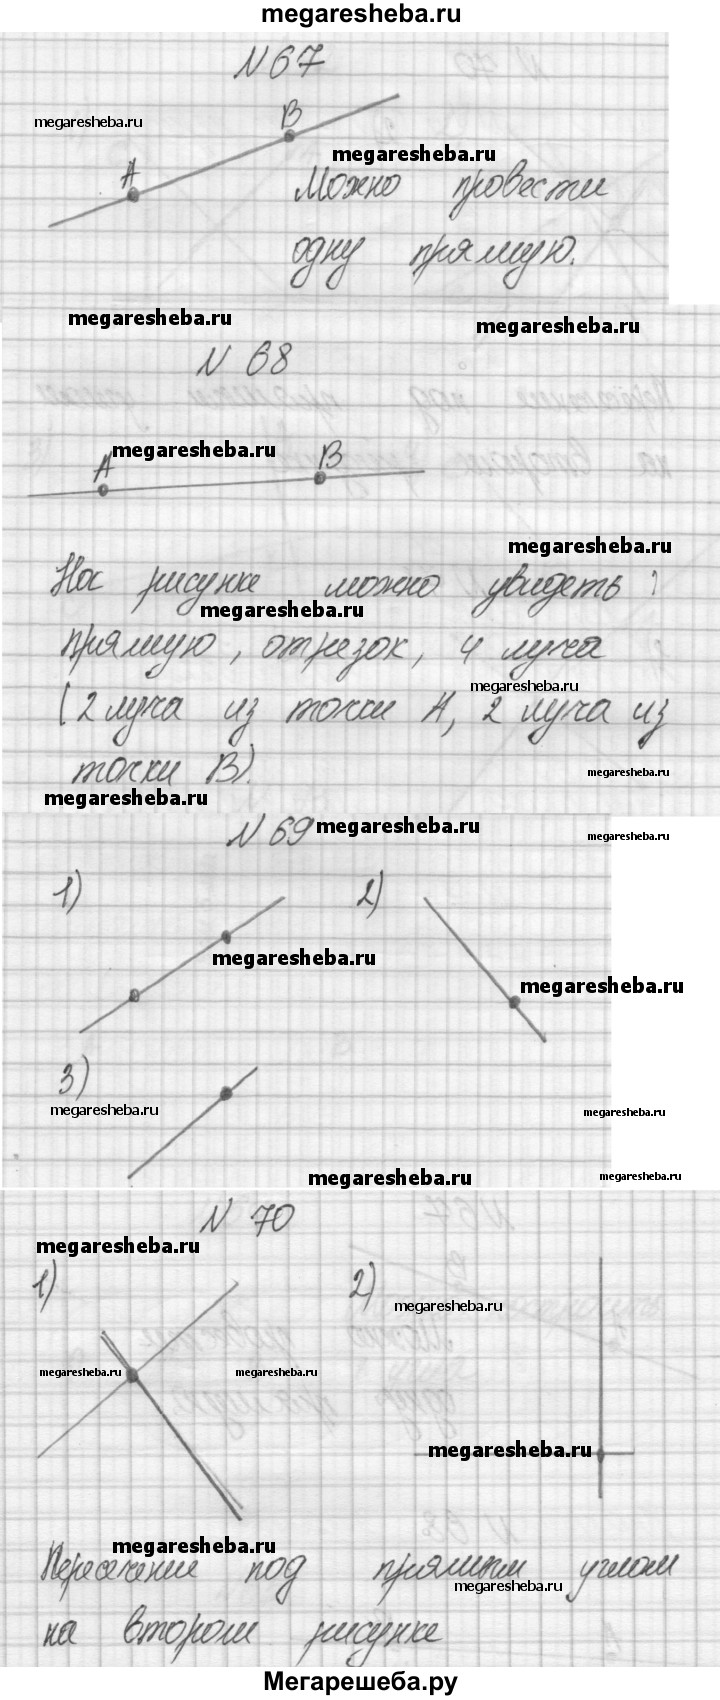 megaresheba.ru
N 67
megaresheba.ru
B
A
megaresheba.ru
Можно провести
одну прямую.
megaresheba.ru
megaresheba.ru
N 68
megaresheba.ru
A
B
megaresheba.ru
На рисунке можно увидеть:
megaresheba.ru
прямую, отрезок, 4 луча
megaresheba.ru
(2 луча из точки А, 2 луча из
точки В).
megaresheba.ru
megaresheba.ru
N 69
megaresheba.ru
megaresheba.ru
1)
2)
megaresheba.ru
megaresheba.ru
3)
megaresheba.ru
megaresheba.ru
megaresheba.ru
megaresheba.ru
N 70
megaresheba.ru
1)
2)
megaresheba.ru
megaresheba.ru
megaresheba.ru
megaresheba.ru
megaresheba.ru
Пересечение под прямым углом
megaresheba.ru
на втором рисунке
Мегарешеба.ру